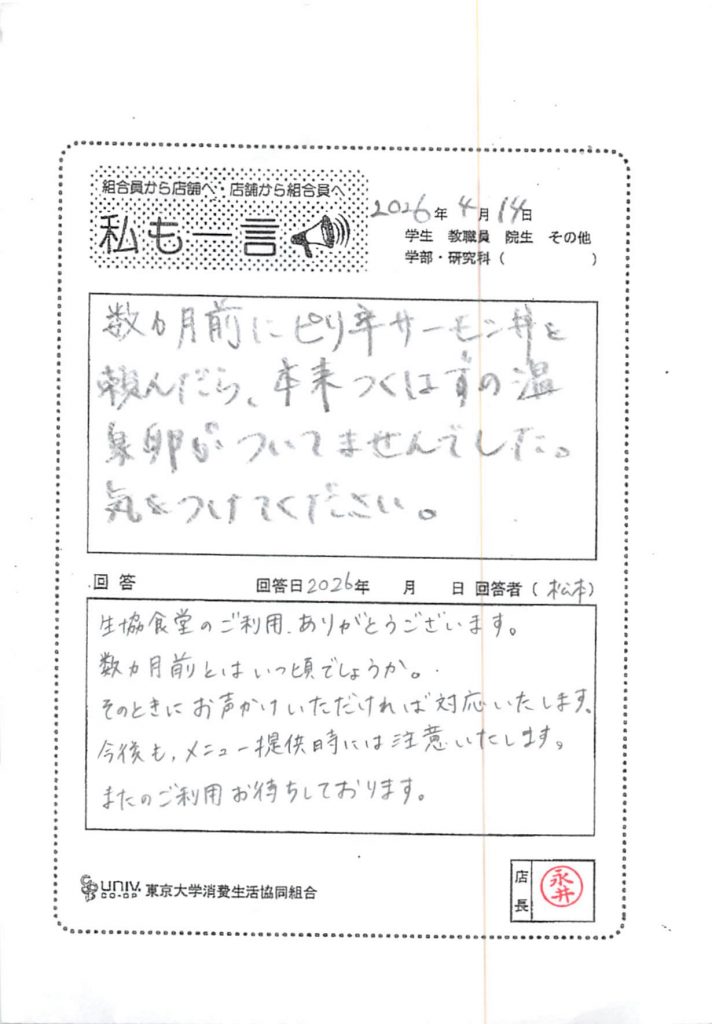 組合員から店舗へ・店舗から組合員へ
私も一言
2026年 4月 14日
学生 教職員 院生 その他
学部・研究科 ( )
数カ月前にピリ辛サーモン丼を
頼んだら、本来つくはずの温
泉卵がついてませんでした。
気をつけてください。
回答 回答日2026年 月 日 回答者 ( 松本)
生協食堂のご利用、ありがとうございます。
数カ月前とはいつ頃でしょうか。
そのときにお声かけいただければ対応いたします。
今後も、メニュー提供時には注意いたします。
またのご利用お待ちしております。
UNIV.
CO-OP
東京大学消費生活協同組合
店長
永井